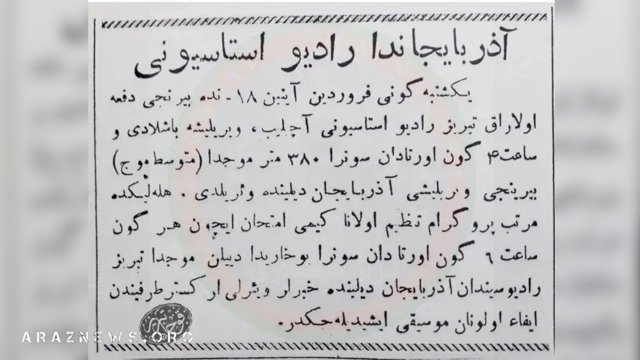 آذربایجاندا رادیو استاسیونی
یکشنبه گونی فروردین آیینین ۱۸-نده بیرنجی دفعه
اولاراق تبریز رادیو استاسیونی آچلیب، ویریلیشه باشلادی و
ساعت ۴ گون اورتادان سونرا ۳۸۰ متر موجدا (متوسط موج)
بیرینجی ویریلیشی آذربایجان دیلینده وئریلدی. هله‌لیکده
مرتب پروگرام تنظیم اولانا کیمی امتحان ایچون هر گون
ساعت ٦ گون اورتادان سونرا یوخاریدا دییلن موجدا تبریز
رادیوسیندان آذربایجان دیلینده خبرلر ویرلی ارکستر طرفیندن
ایفاء اولونان موسیقی ایشیدیله‌جکدر.
ARAZNEWS.ORG